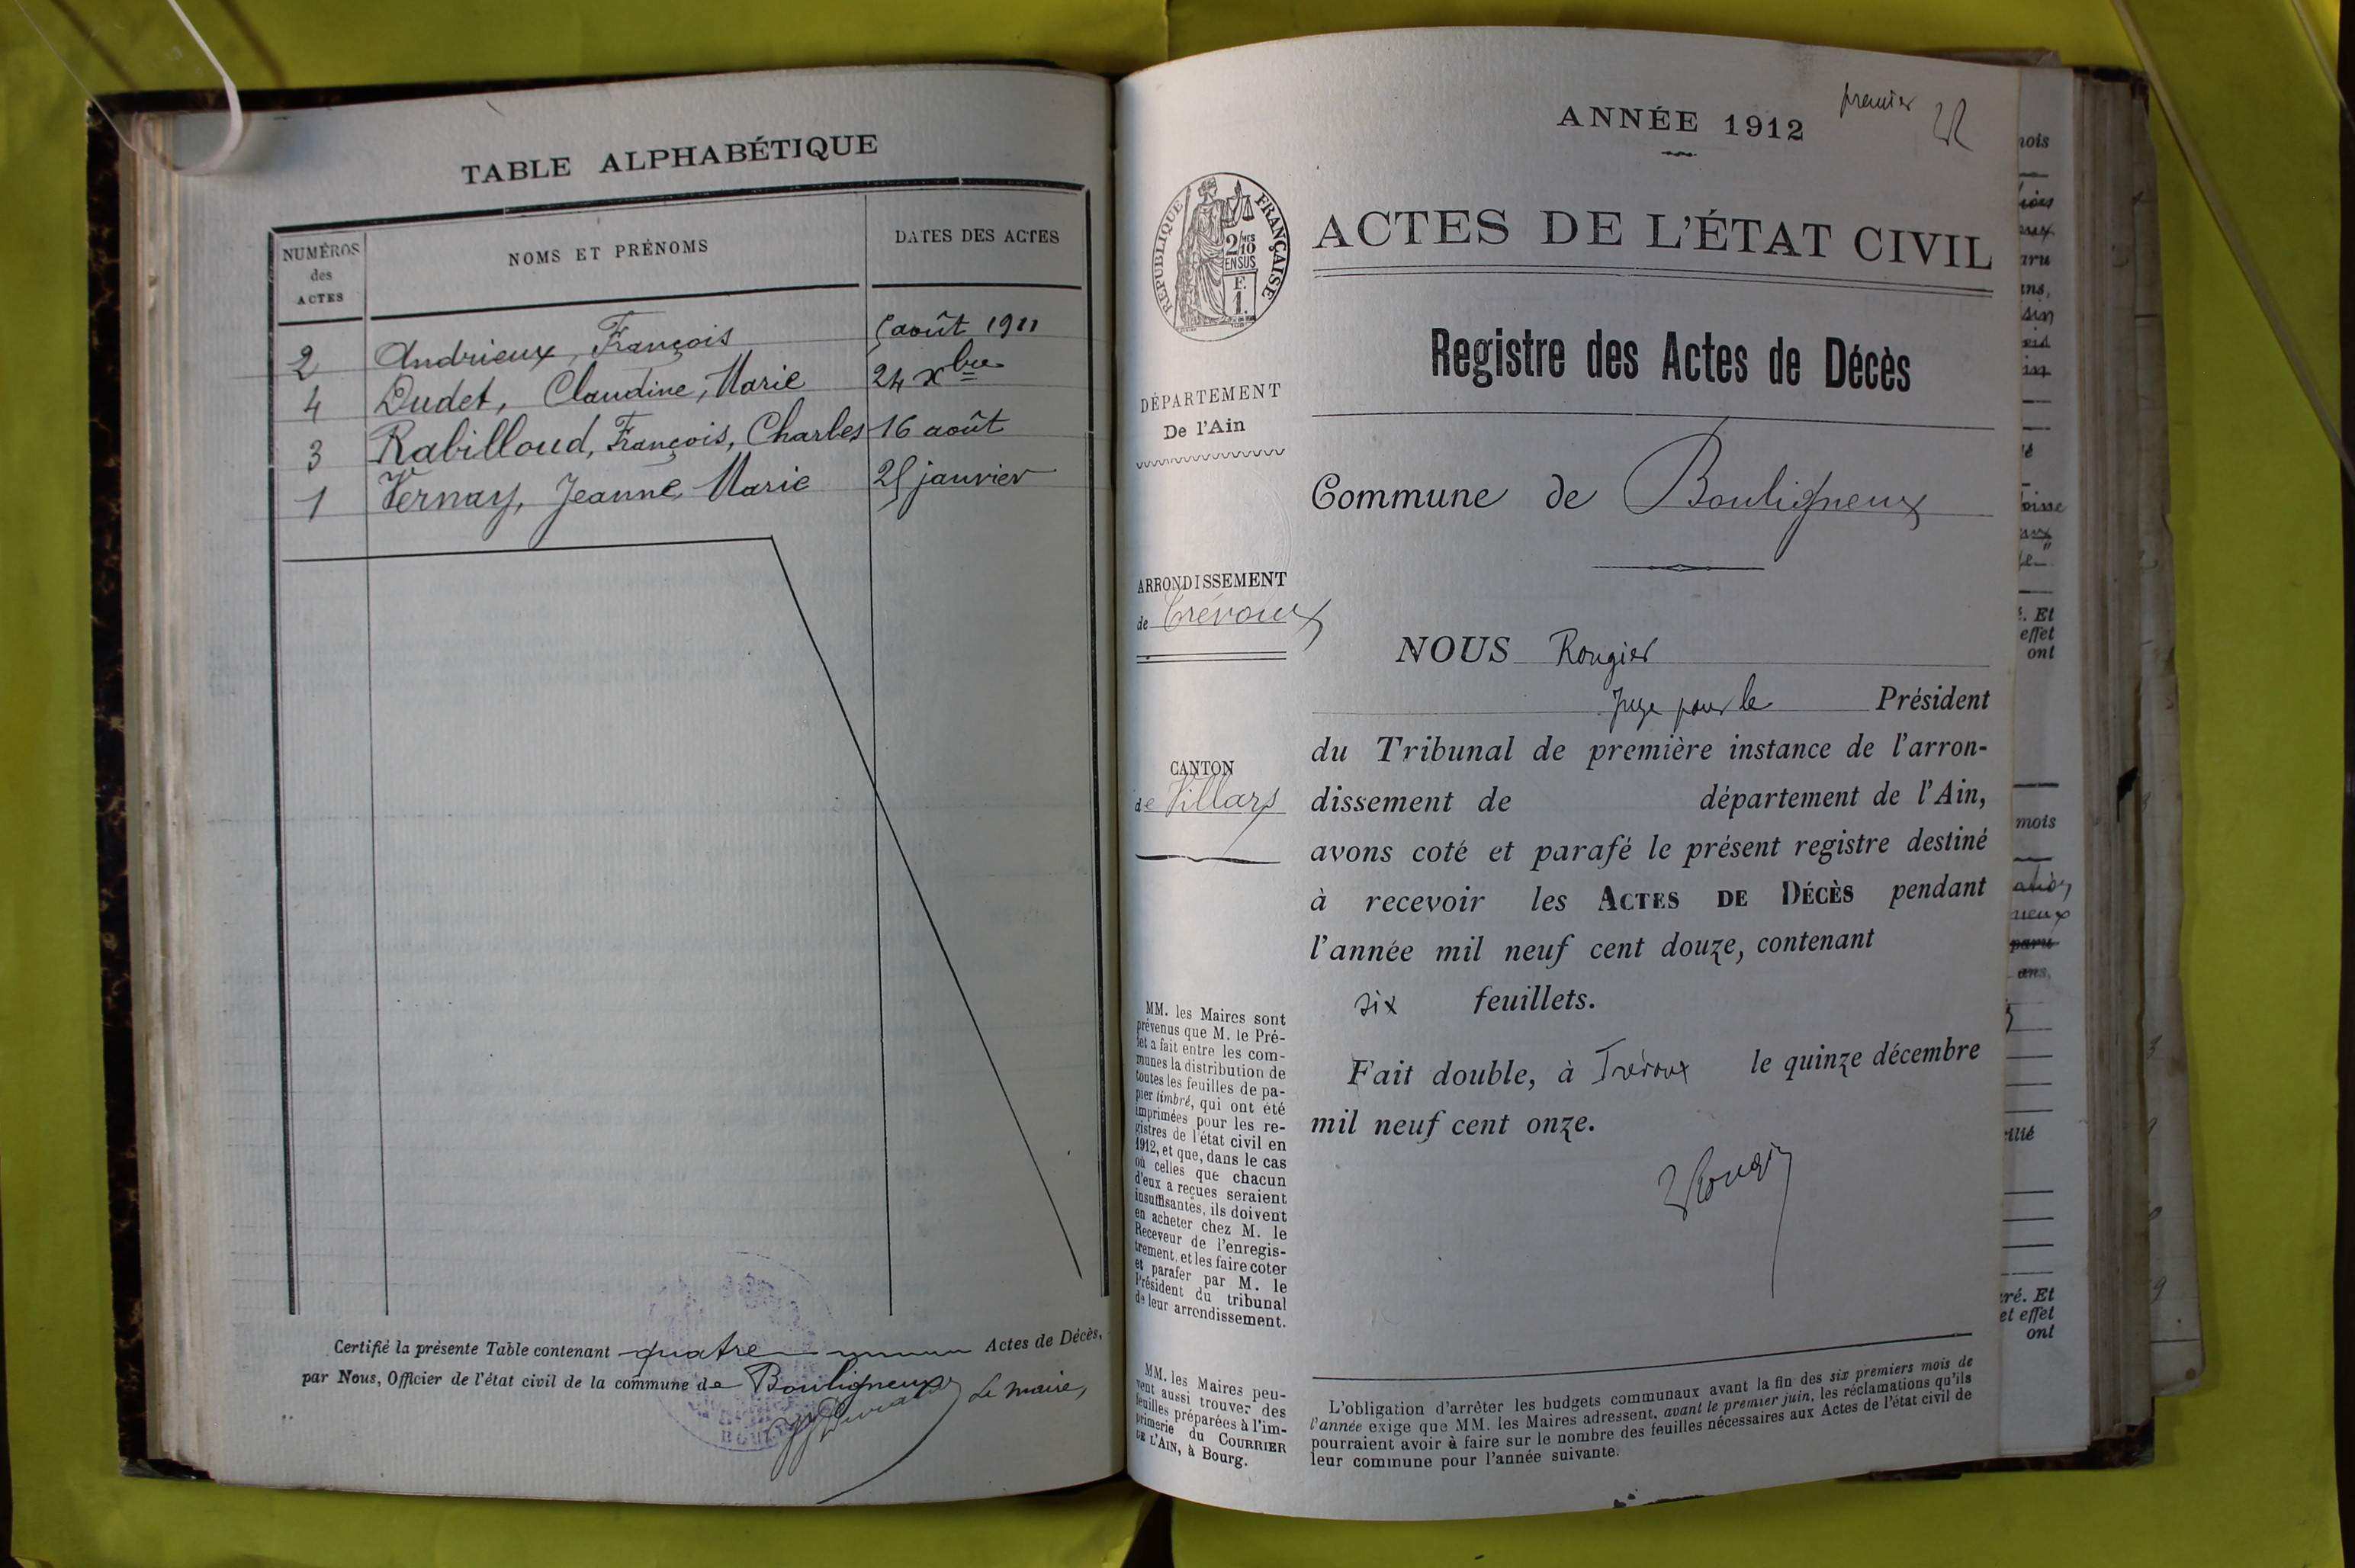 TABLE ALPHABÉTIQUE
NUMÉROS
des
ACTES
NOMS ET PRÉNOMS
DATES DES ACTES
2 Andrieux, François 5 août 1911
4 Dudet, Claudine, Marie 24 Xbre
3 Rabilloud, François, Charles 16 août
1 Vernay, Jeanne Marie 25 janvier
Certifié la présente Table contenant quatre Actes de Décès,
par Nous, Officier de l'état civil de la commune de Bouligneux Le maire,
premier
ANNÉE 1912
RÉPUBLIQUE FRANÇAISE
2/10
EN SUS
F.
1.
ACTES DE L'ÉTAT CIVIL
Registre des Actes de Décès
DÉPARTEMENT
De l'Ain
Commune de Bouligneux
ARRONDISSEMENT
de Trévoux
CANTON
de Villars
NOUS Rougier
Juge pour le Président
du Tribunal de première instance de l'arron-
dissement de département de l'Ain,
avons coté et parafé le présent registre destiné
à recevoir les ACTES DE DÉCÈS pendant
l'année mil neuf cent douze, contenant
six feuillets.
Fait double, à Trévoux le quinze décembre
mil neuf cent onze.
Rougier
MM. les Maires sont
prévenus que M. le Pré-
fet a fait entre les com-
munes la distribution de
toutes les feuilles de pa-
pier timbré, qui ont été
imprimées pour les re-
gistres de l'état civil en
1912, et que, dans le cas
où celles que chacun
d'eux a reçues seraient
insuffisantes, ils doivent
en acheter chez M. le
Receveur de l'enregis-
trement, et les faire coter
et parafer par M. le
Président du tribunal
de leur arrondissement.
MM. les Maires peu-
vent aussi trouver des
feuilles préparées à l'im-
primerie du COURRIER
DE L'AIN, à Bourg.
L'obligation d'arrêter les budgets communaux avant la fin des six premiers mois de
l'année exige que MM. les Maires adressent, avant le premier juin, les réclamations qu'ils
pourraient avoir à faire sur le nombre des feuilles nécessaires aux Actes de l'état civil de
leur commune pour l'année suivante.
. Et
effet
ont
mois
neux
ans,
ré. Et
et effet
ont